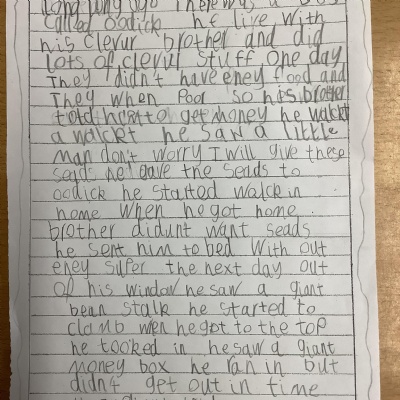 Long long ago There was a
called oodick he live with
his clevur brother and did
lots of clevur stuff one day
They didn't have eney flood and
They when Pool so his brother
told him to get money he walckt
a walckt he saw a little
man don't worry I will give these
seads he gave the seads to
oodick he started walck in
home when he got home
brother didunt want seads
he sent him to bed with out
eney super the next day out
of his window he saw a giant
bean stalk he started to
clamb wen he got to the top
he tooked in he saw a giant
money box he ran in but
didn't get out in time